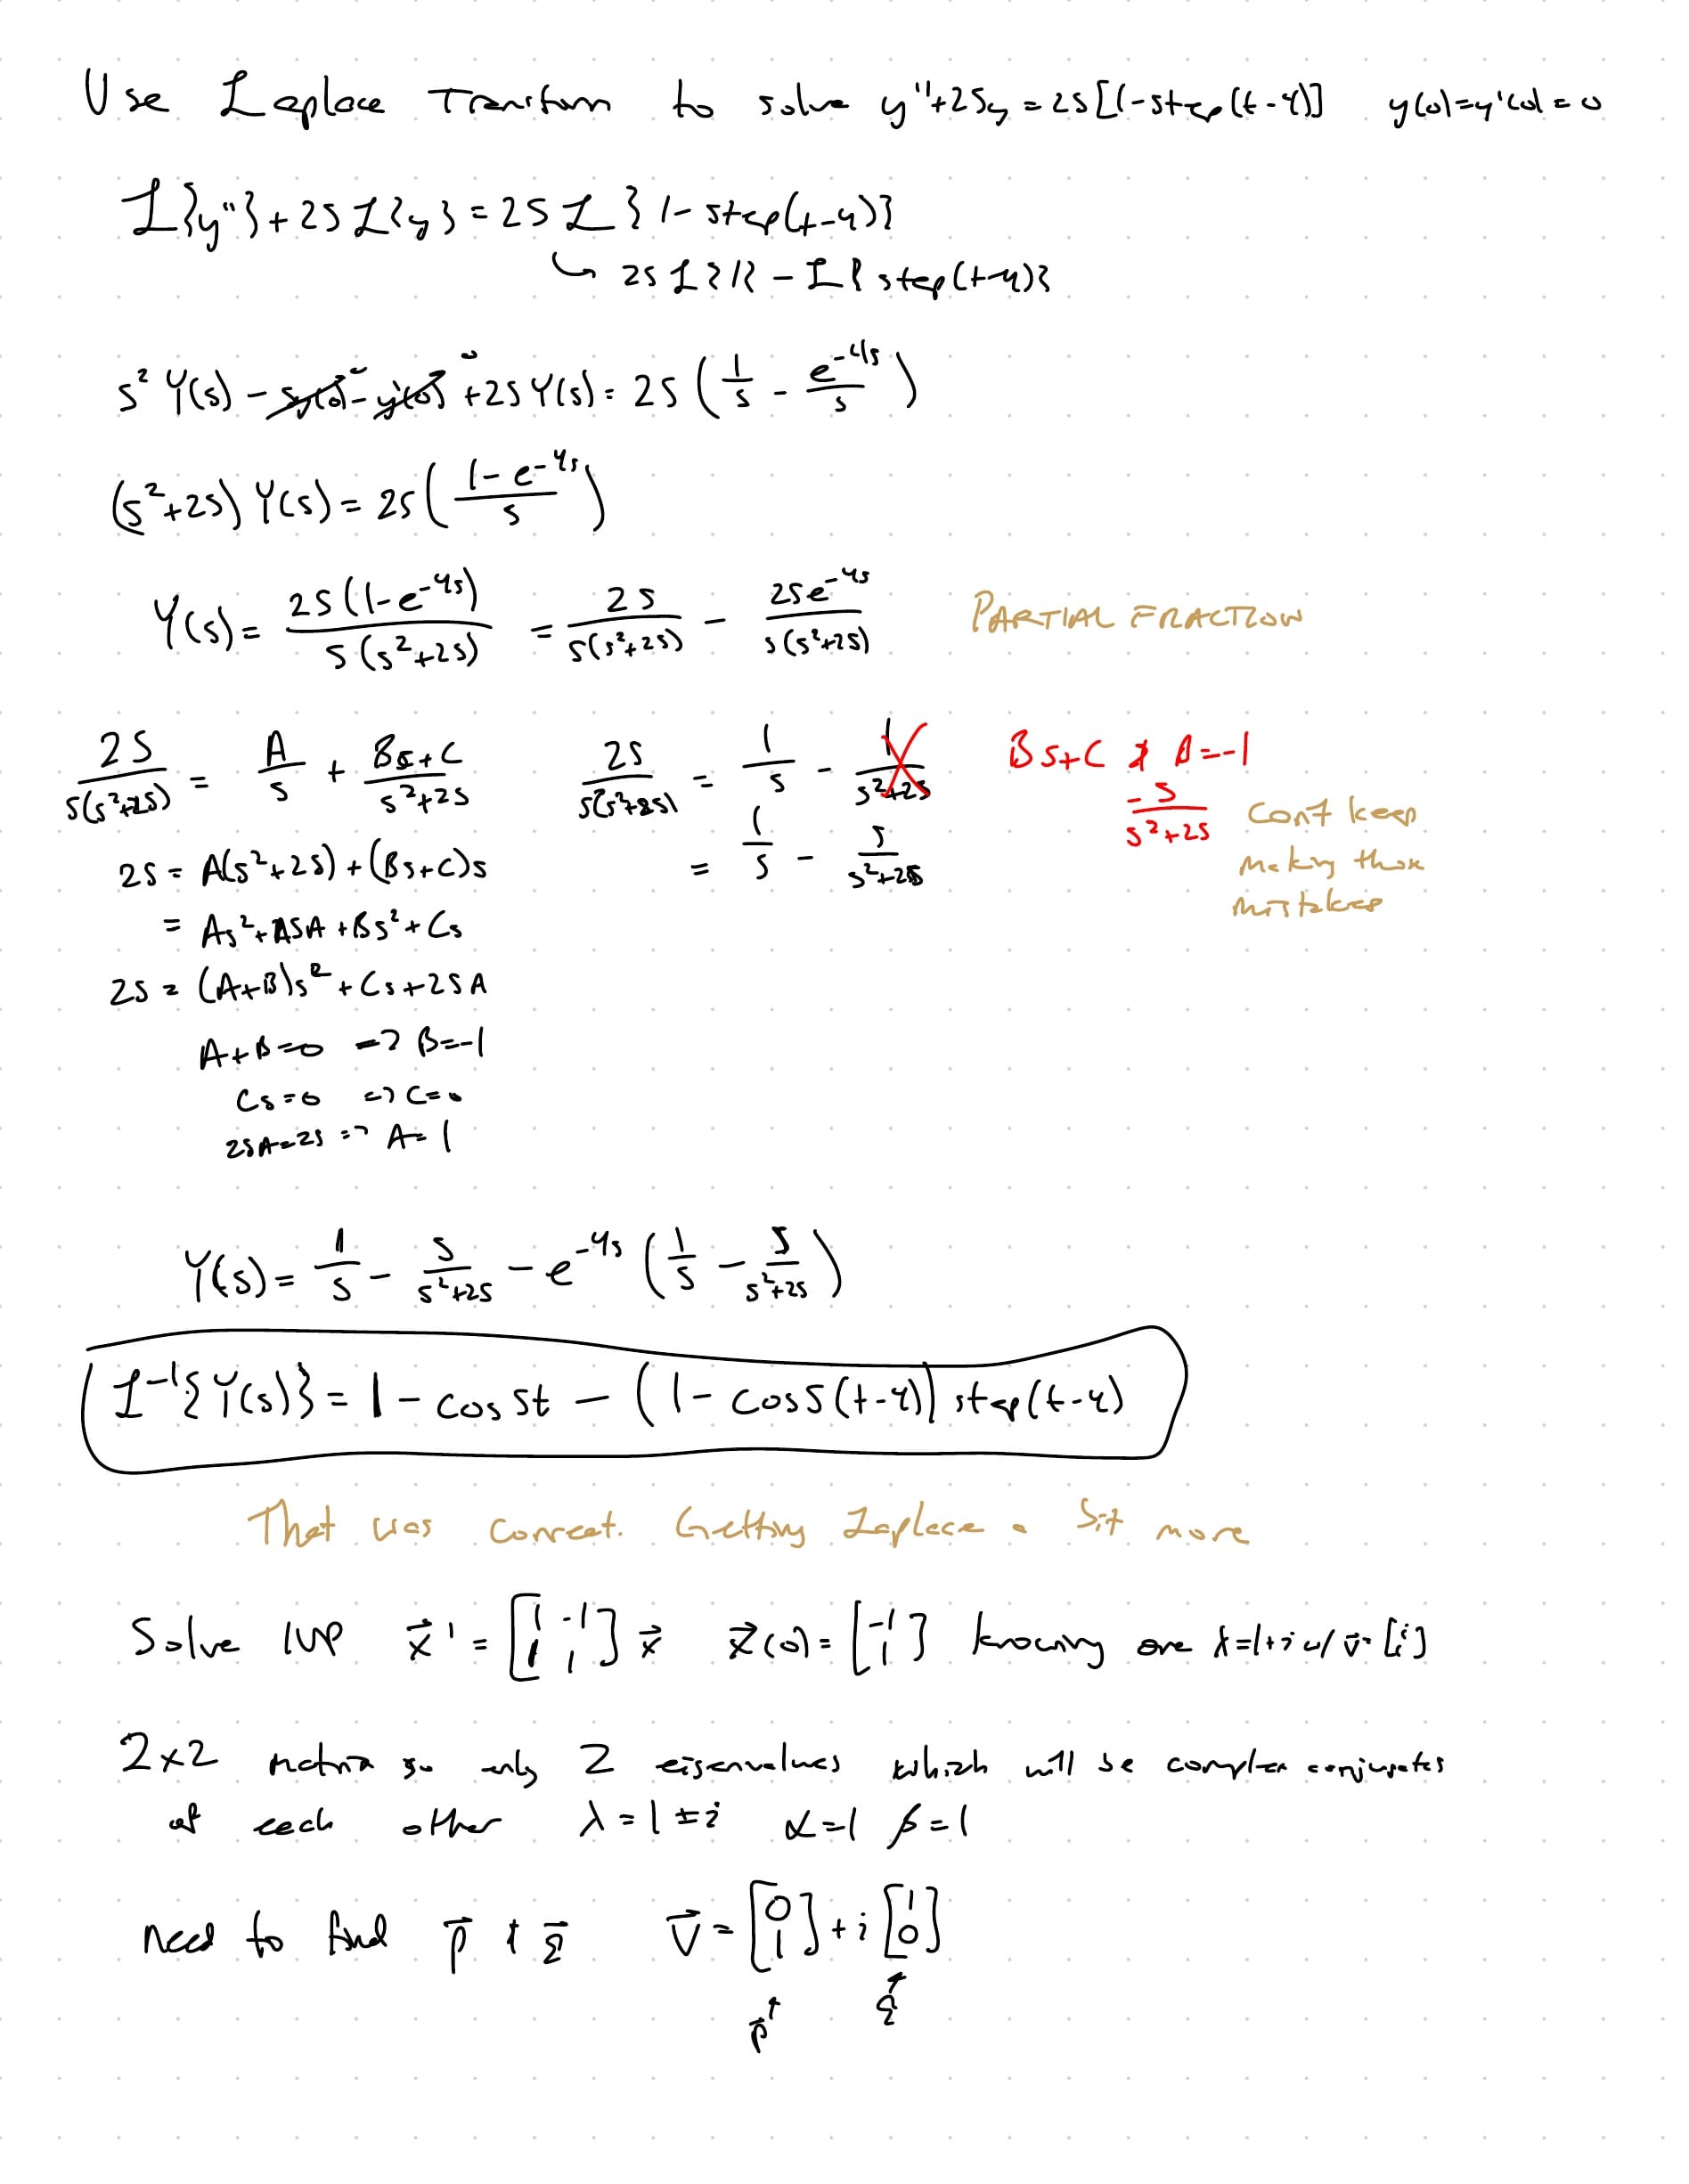 Use Laplace Transform to solve y''+25y = 25[1-step(t-4)] y(0)=y'(0)=0
ℒ{y''}+25ℒ{y}=25ℒ{1-step(t-4)}
↳ 25ℒ{1}-ℒ{step(t-4)}
s² Y(s) - sy(0)⁰ - y'(0)⁰ +25Y(s) = 25(1/s - e^-4s/s)
(s²+25) Y(s) = 25((1-e^-4s)/s)
Y(s) = 25(1-e^-4s)/(s(s²+25)) = 25/(s(s²+25)) - 25e^-4s/(s(s²+25)) PARTIAL FRACTION
25/(s(s²+25)) = A/s + (Bs+C)/(s²+25)
25 = A(s²+25)+(Bs+C)s
= As²+25A+Bs²+Cs
25 = (A+B)s²+Cs+25A
A+B=0 => B=-1
Cs=0 => C=0
25A=25 => A=1
25/(s(s²+25)) = 1/s - 1/(s²+25)
= 1/s - s/(s²+25)
Bs+C & B=-1
-s/(s²+25)
Can't keep
making these
mistakes
Y(s) = 1/s - s/(s²+25) - e^-4s (1/s - s/(s²+25))
ℒ⁻¹{Y(s)} = 1 - cos5t - (1-cos5(t-4)) step(t-4)
That was correct. Getting Laplace a bit more
Solve IVP x⃗' = [1 -1; 1 1] x⃗ x⃗(0) = [-1; 1] knowing one λ=1+i w/ v⃗=[i; 1]
2x2 matrix so only 2 eigenvalues which will be complex conjugates
of each other λ=1±i α=1 β=1
need to find p⃗ & q⃗ v⃗ = [0; 1] + i [1; 0]
↑ p⃗ ↑ q⃗